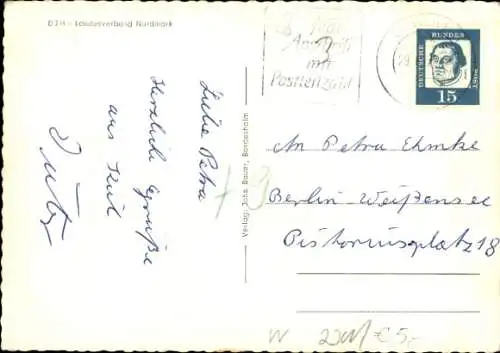 DJH - Landesverband Nordmark
Anschrift
mit
Postleitzahl
DEUTSCHE BUNDESPOST
15
Liebe Petra
Herzliche Grüße
aus Kiel
Verlag: Johs. Bauer, Bordesholm
An Petra Ehmke
Berlin-Weißensee
Pistoriusplatz 18
W €5,-